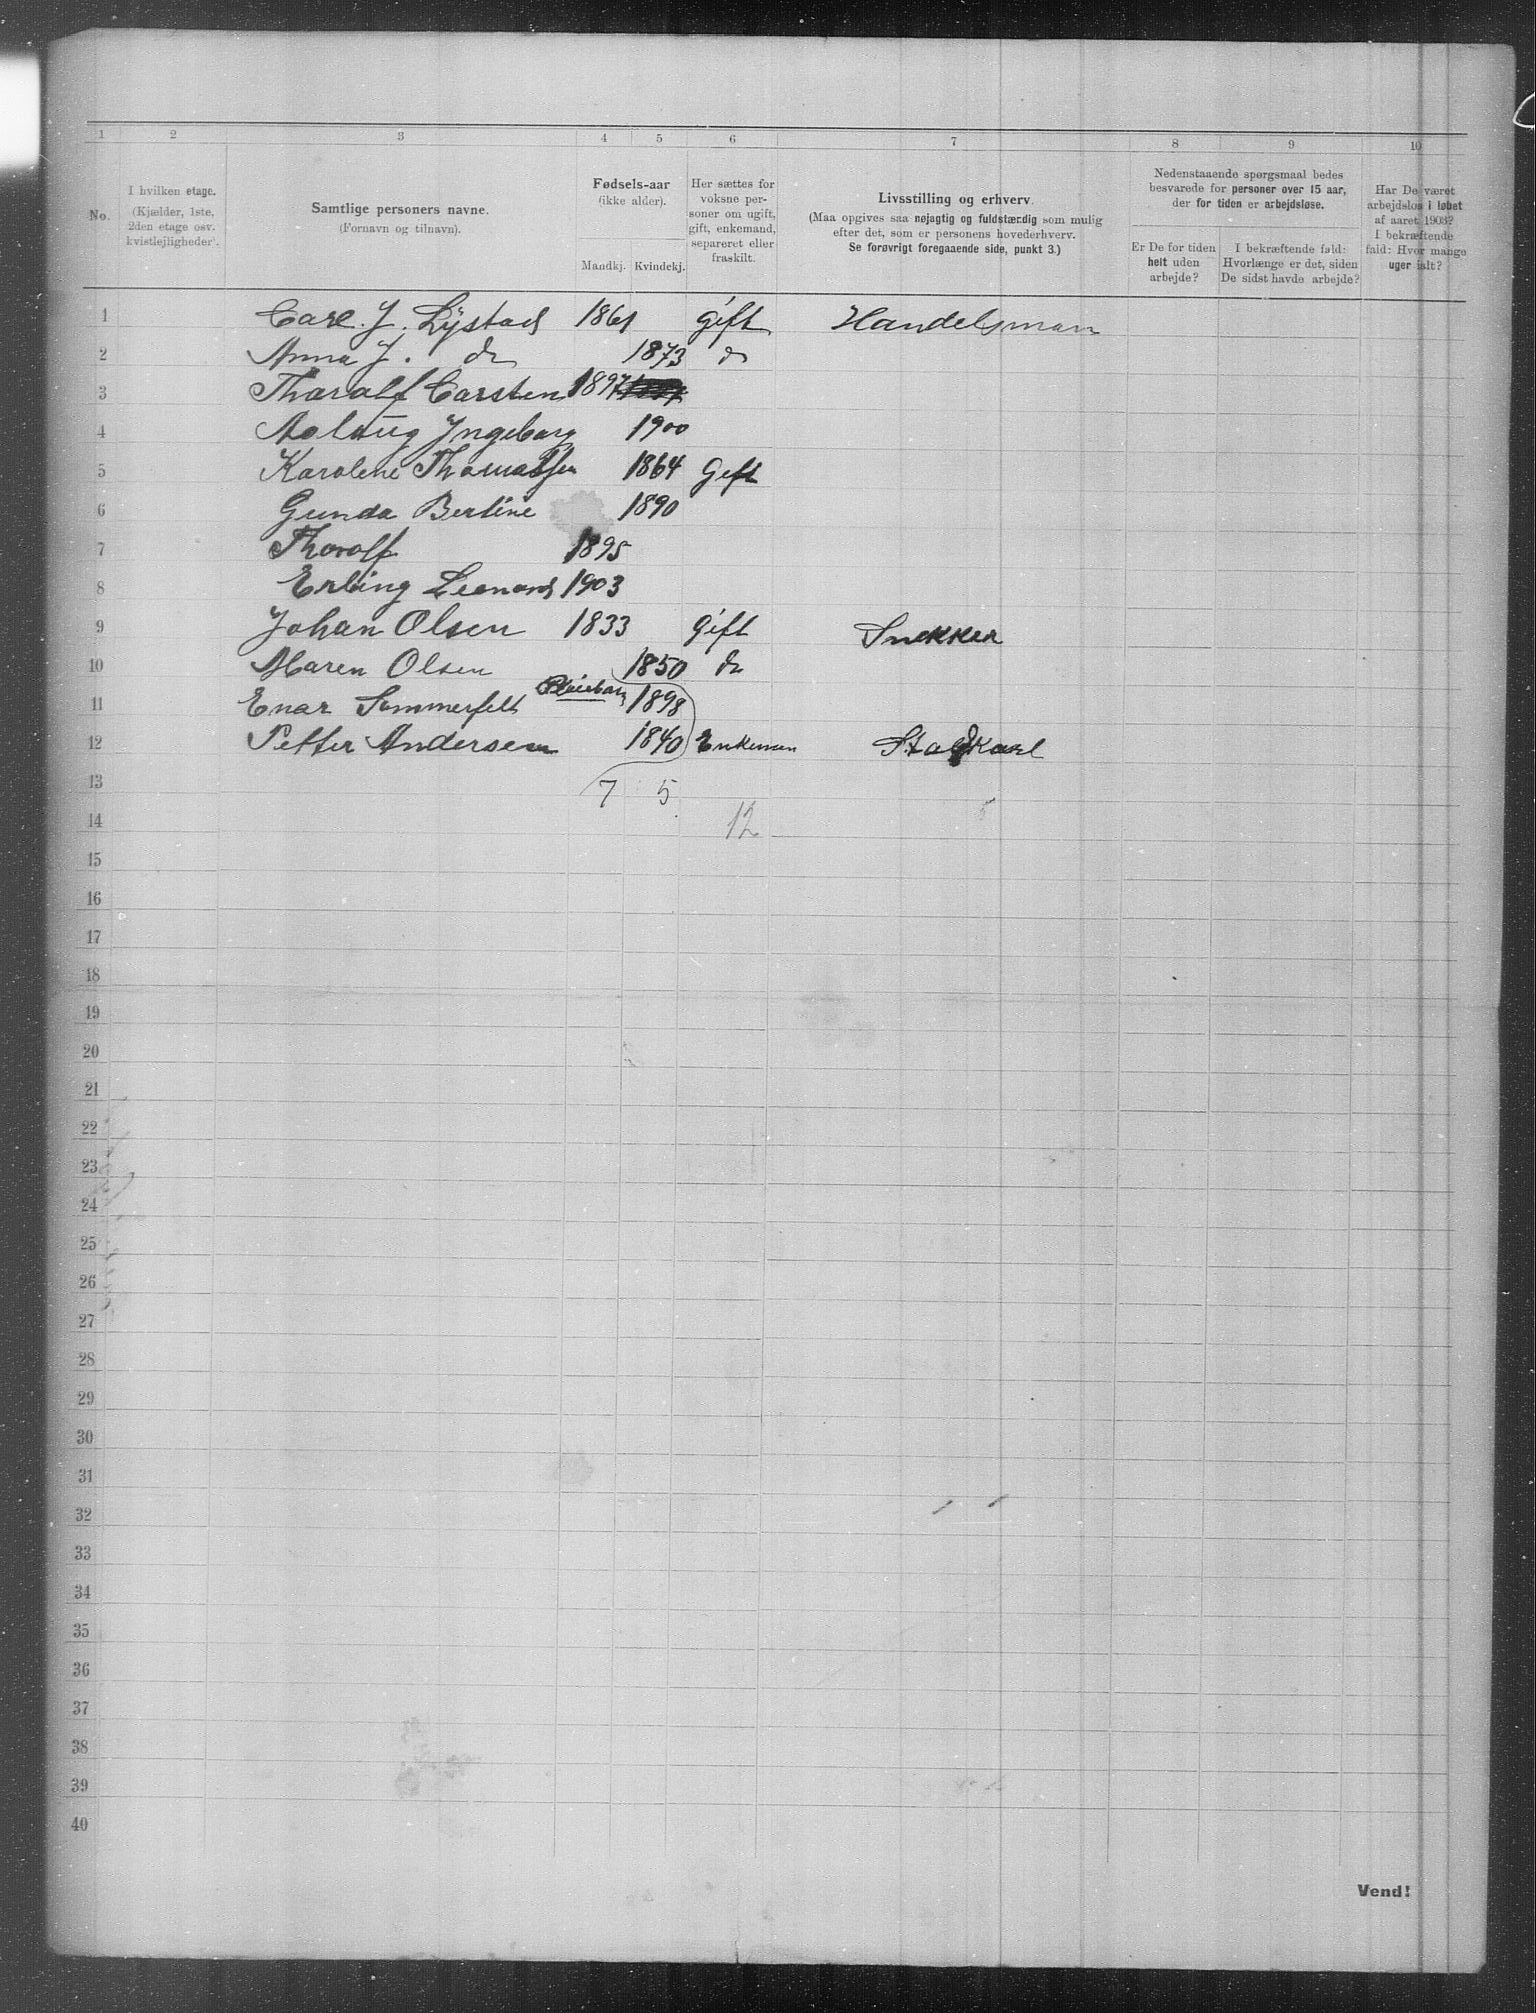 1 2 3 4 5 6 7 8 9 10
No.
I hvilken etage.
(Kjælder, 1ste, 2den etage osv. kvistlejligheder).
Samtlige personers navne.
(Fornavn og tilnavn).
Fødsels-aar
(ikke alder).
Mandkj. Kvindekj.
Her sættes for voksne personer om ugift, gift, enkemand, separeret eller fraskilt.
Livsstilling og erhverv.
(Maa opgives saa nøjagtig og fuldstændig som mulig efter det, som er personens hovederhverv.
Se forøvrigt foregaaende side, punkt 3.)
Nedenstaaende spørgsmaal bedes besvarede for personer over 15 aar, der for tiden er arbejdsløse.
Er De for tiden helt uden arbejde?
I bekræftende fald: Hvorlænge er det, siden De sidst havde arbejde?
Har De været arbejdsløs i løbet af aaret 1903? I bekræftende fald: Hvor mange uger ialt?
1 Carl. J. Lÿstad 1861 gift Handelsman
2 Anna J. do 1873 do
3 Tharalf Carsten 1897
4 Aslaug Ingeborg 1900
5 Karolene Thomassen 1864 Gift
6 Gunda Bertine 1890
7 Thorolf 1895
8 Erling Leonard 1903
9 Johan Olsen 1833 Gift Snekker
10 Maren Olsen 1850 do
11 Enar Sommerfelt Pleiebarn 1898
12 Petter Andersen 1840 Enkeman Staldkarl
13 7 5
14 12
15
16
17
18
19
20
21
22
23
24
25
26
27
28
29
30
31
32
33
34
35
36
37
38
39
40
Vend!